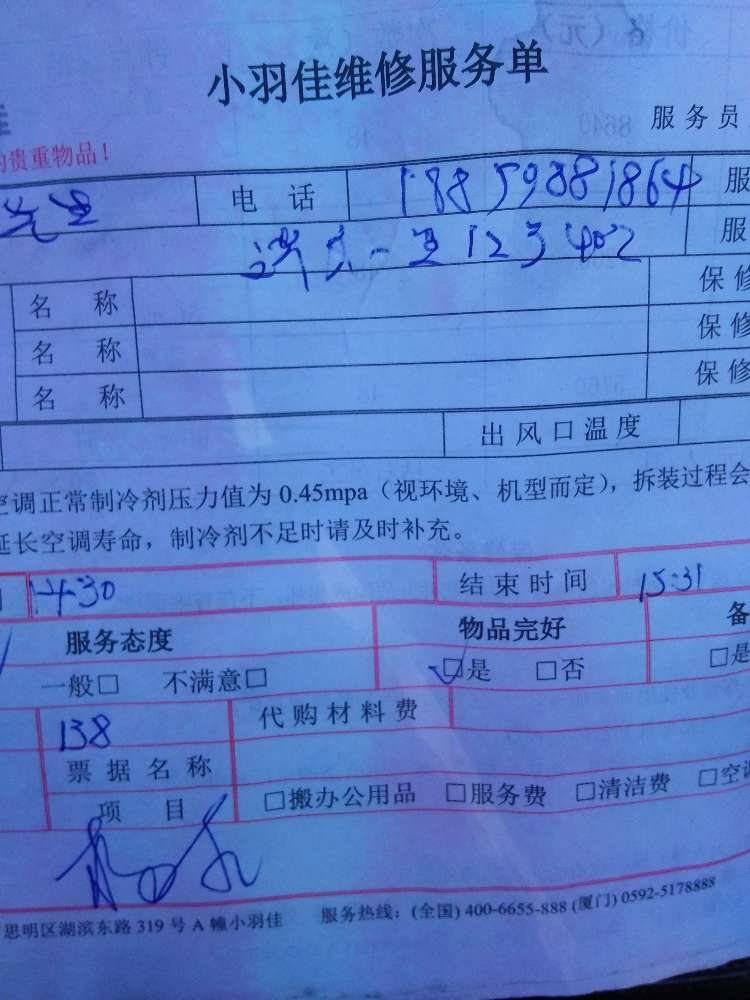 价格（元）
8640
48
小羽佳维修服务单
服务员
的贵重物品！
先生 电 话 18859881864 服
123 402 服
名 称 保修
名 称 保修
名 称 保修
5760
48
出风口温度
空调正常制冷剂压力值为 0.45mpa（视环境、机型而定），拆装过程会
延长空调寿命，制冷剂不足时请及时补充。
14:30 结束时间 15:31
服务态度 物品完好 备
一般□ 不满意□ □是 □否 □是
138 代购材料费
票据名称
项 目 □搬办公用品 □服务费 □清洁费 □空调
思明区湖滨东路 319 号 A 幢小羽佳 服务热线：(全国) 400-6655-888 (厦门) 0592-5178888